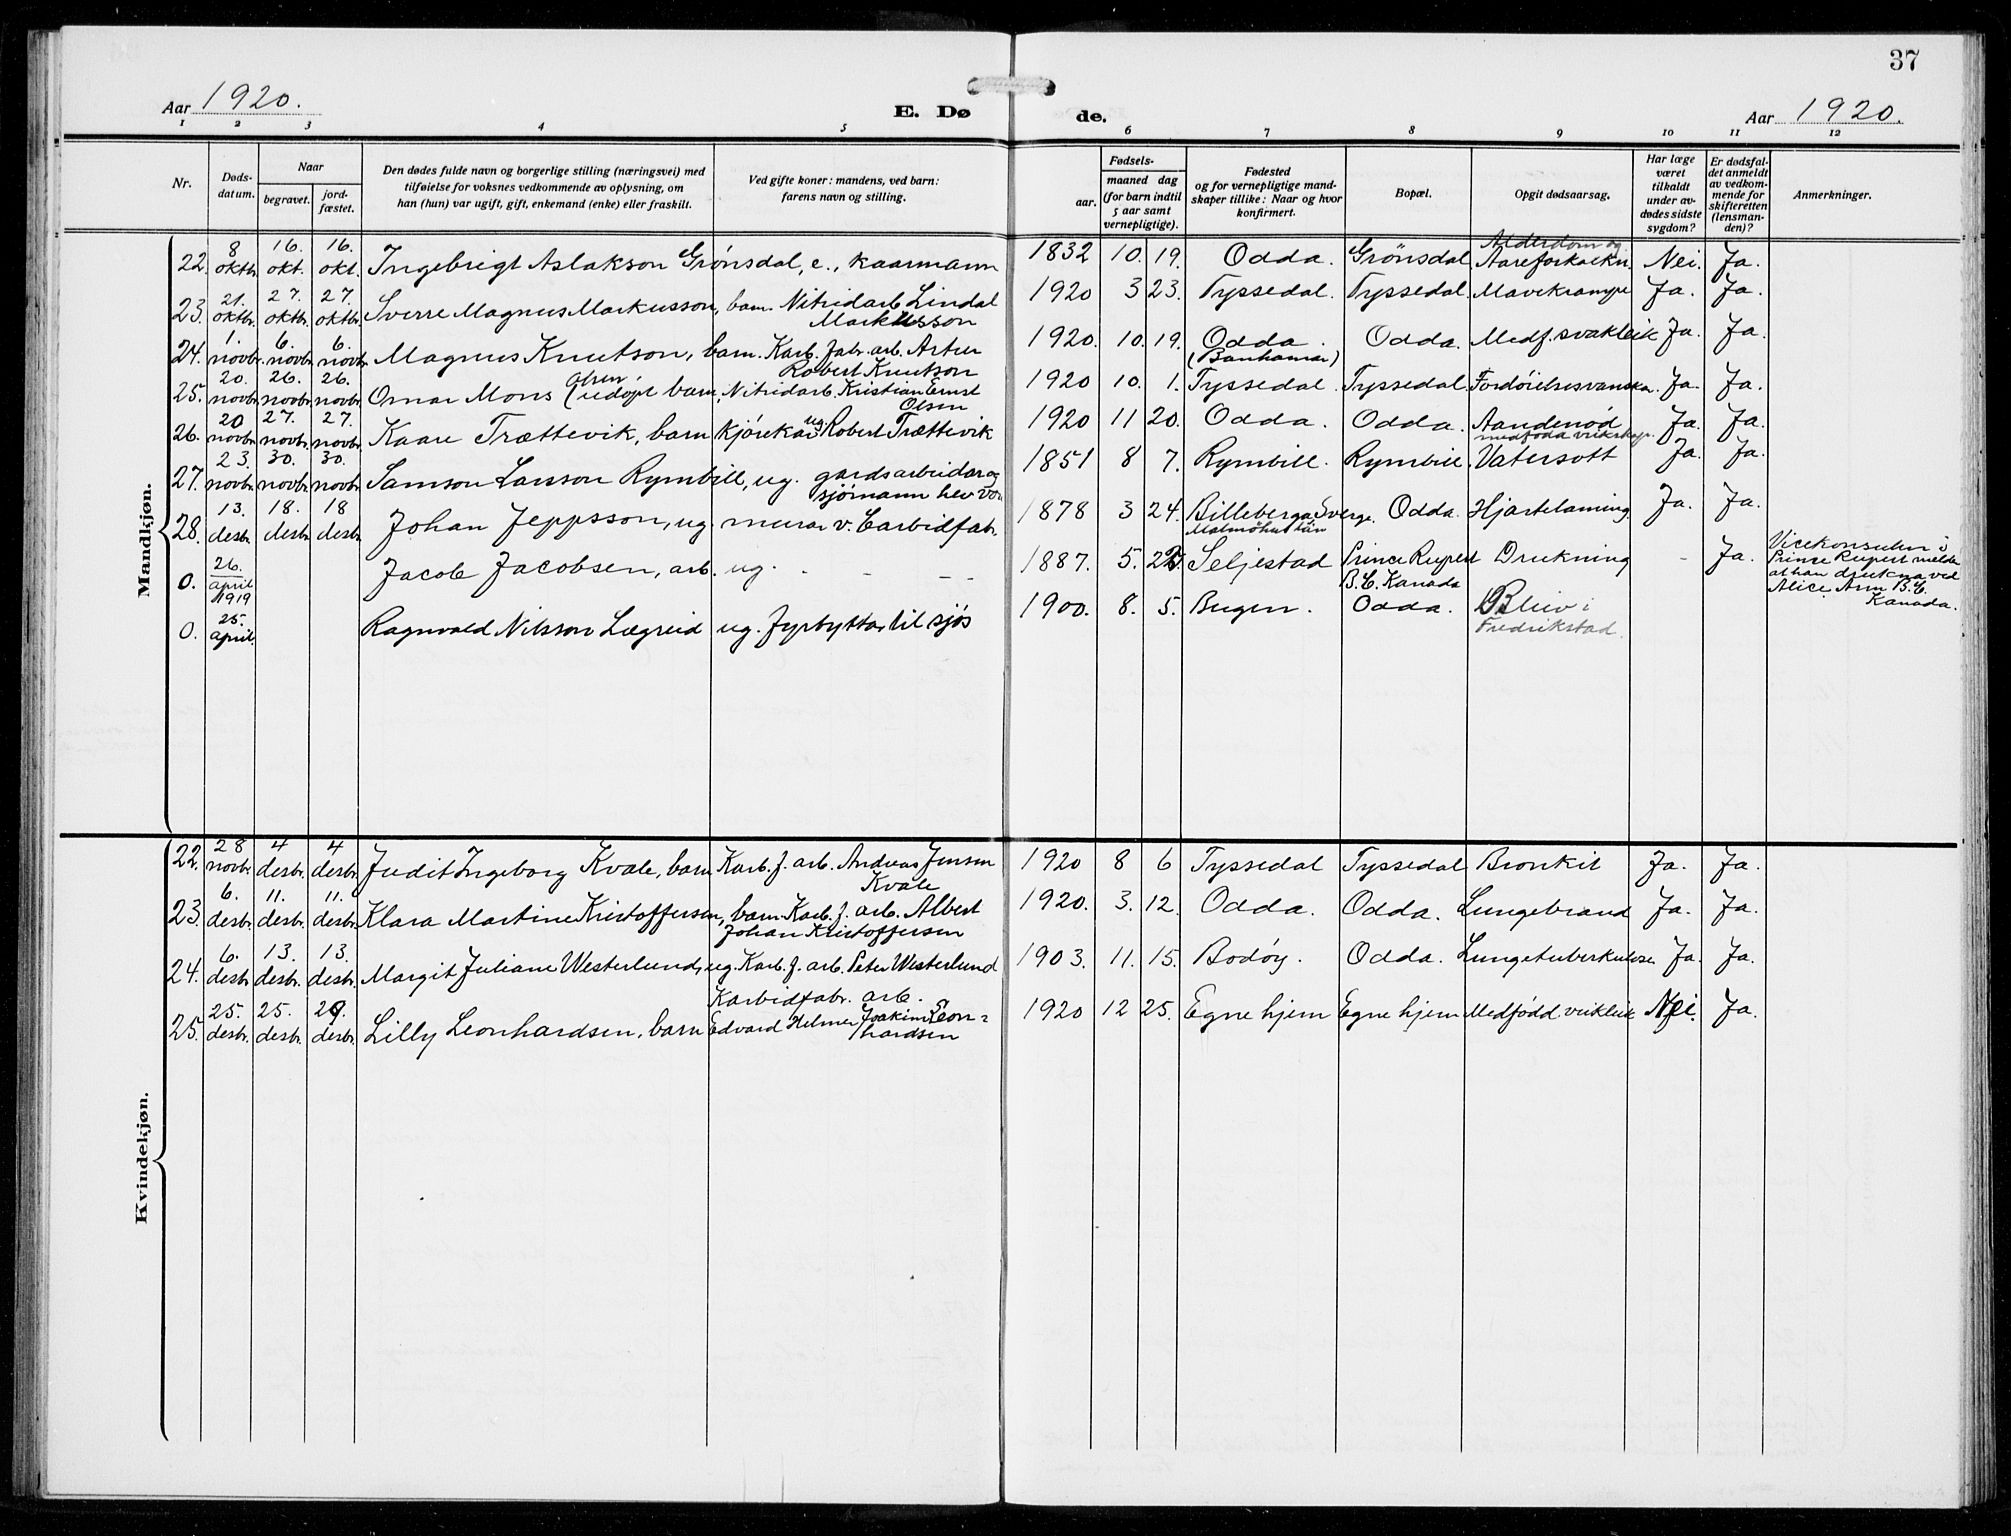 37
Aar 1920.
E. Døde.
Aar 1920.
1 2 3 4 5 6 7 8 9 10 11 12
Nr.
Dødsdatum.
Naar
begravet.
jordfæstet.
Den dødes fulde navn og borgerlige stilling (næringsvei) med
tilføielse for voksnes vedkommende av oplysning, om
han (hun) var ugift, gift, enkemand (enke) eller fraskilt.
Ved gifte koner: mandens, ved barn:
farens navn og stilling.
Fødsels-
aar.
maaned dag
(for barn indtil
5 aar samt
vernepligtige).
Fødested
og for vernepligtige mand-
skaper tillike: Naar og hvor
konfirmert.
Bopæl.
Opgit dødsaarsag.
Har læge
været
tilkaldt
under av-
dødes sidste
sygdom?
Er dødsfal-
det anmeldt
av vedkom-
mende for
skifteretten
(lensman-
den)?
Anmerkninger.
Mandkjøn.
22. 8 oktbr. 16. okt. 16. okt. Ingebrigt Aslakson Grønsdal, e., kaarmann 1832 10. 19. Odda. Grönsdal Alderdom og Aareforkalkn. Nei. Ja.
23. 21. oktbr. 27. oktbr. 27. oktbr. Sverre Magnus Markusson, barn. Nitridarb. Lindal Markusson 1920 3 23. Tyssedal. Tyssedal. Mavekrampe Ja. Ja.
24. 1. novbr. 6. novbr. 6. novbr. Magnus Knutson, barn. Karb. fabr. arb. Artur Robert Knutson 1920. 10. 19. Odda. (Banhamar) Odda. Medf. svakleik Ja. Ja.
25. 20. novbr. 26. novbr. 26. novbr. Omar Mons Olsen (udøpt barn, Nitridarb. Kristian Ernst Olsen 1920 10. 1. Tyssedal. Tyssedal. Fordöielsesvanska. Ja. Ja.
26. 20 novbr. 27. novbr. 27. novbr. Kaare Trættevik, barn Kjørekar ug. Robert Trættevik 1920 11 20. Odda. Odda. Aandenöd medfödd veikskap. Ja. Ja.
27. 23. novbr. 30. novbr. 30. novbr. Samson Larsson Rymbill, ug. gardsarbeidar og sjømann hev vore 1851 8 7. Rymbill. Rymbill. Vatersott Ja. Ja.
28. 13. desbr. 18. desbr. 18 desbr. Johan Jeppsson, ug. murar v. Carbidfabr. 1878 3 24. Billeberga Sverge. Malmöhus län Odda. Hjartelaming Ja. Ja.
0. 26. april 1919 Jacob Jacobsen, arb. ug. - - - - 1887. 5. 22. Seljestad Prince Rupert B.C. Kanada Drukning - Ja. Vicekonsulen i Prince Rupert melde at han drukna ved Alice Arm B.C. Kanada.
0. 25. april. Ragnvald Nilsson Lægreid ug. fyrbyttar til sjös 1900. 8. 5. Bugen. Odda. Bleiv i Fredrikstad.
Kvindekjøn.
22. 28 novbr. 4 desbr. 4 desbr. Judit Ingeborg Kvale, barn Karb. f. arb. Andreas Jensen Kvale 1920 8 6 Tyssedal Tyssedal Bronkit Ja. Ja.
23. 6. desbr. 11. desbr. 11. desbr. Klara Martine Kristoffersen, barn Karb. f. arb. Albert Johan Kristoffersen 1920. 3. 12. Odda. Odda. Lungebrand Ja. Ja.
24. 6. desbr. 13. desbr. 13. desbr. Margit Juliane Westerlund, ug. Karb. f. arb. Peter Westerlund 1903. 11. 15. Bodöy. Odda. Lungetuberkulose Ja. Ja.
25. 25. desbr. 25. desbr. 29. desbr. Lilly Leonhardsen, barn Karbidfabr. arb. Edvard Helmer Joakim Leonhardsen 1920 12 25. Egne hjem Egne hjem Medfødd veikleik Nei. Ja.